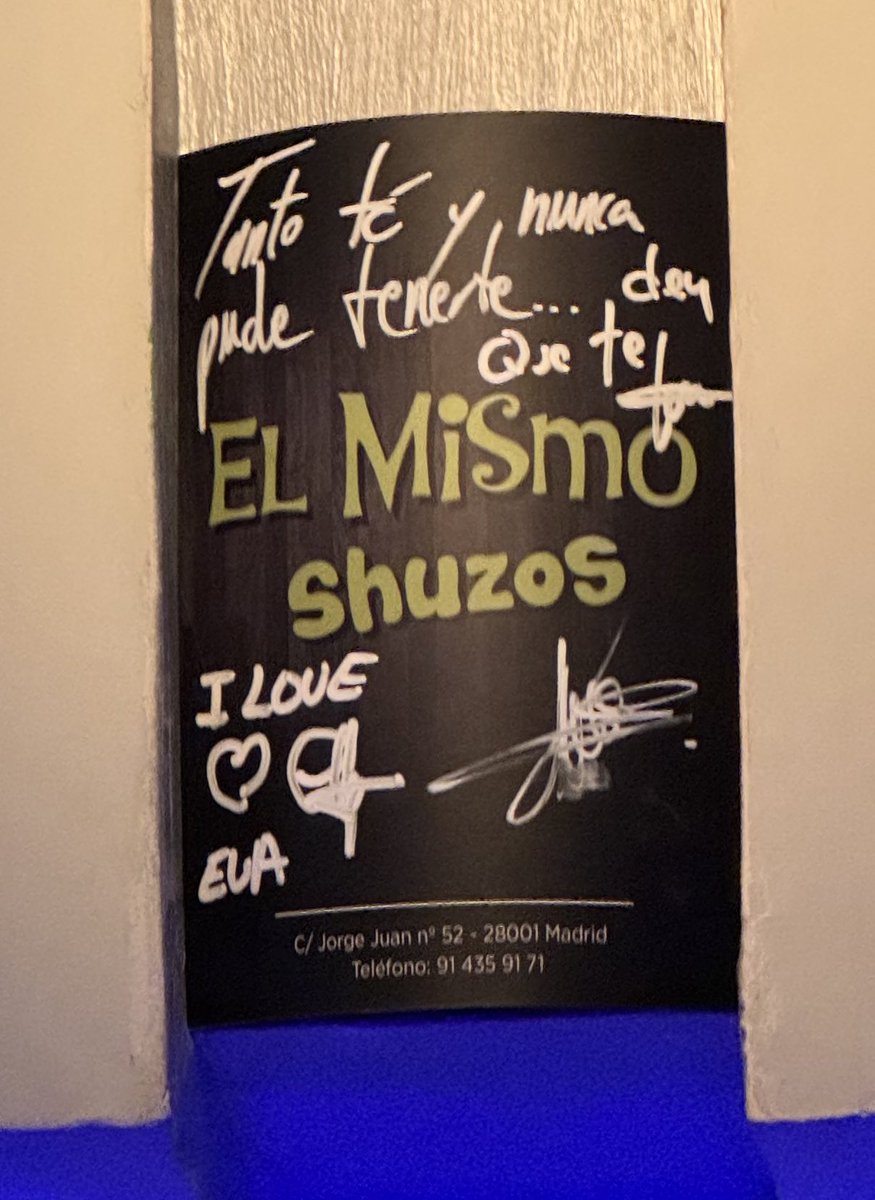 Tanto té y nunca
pude tenerte... den
Que te
EL MiSmo
shuzos
I LOVE
EVA
C/ Jorge Juan nº 52 - 28001 Madrid
Teléfono: 91 435 91 71